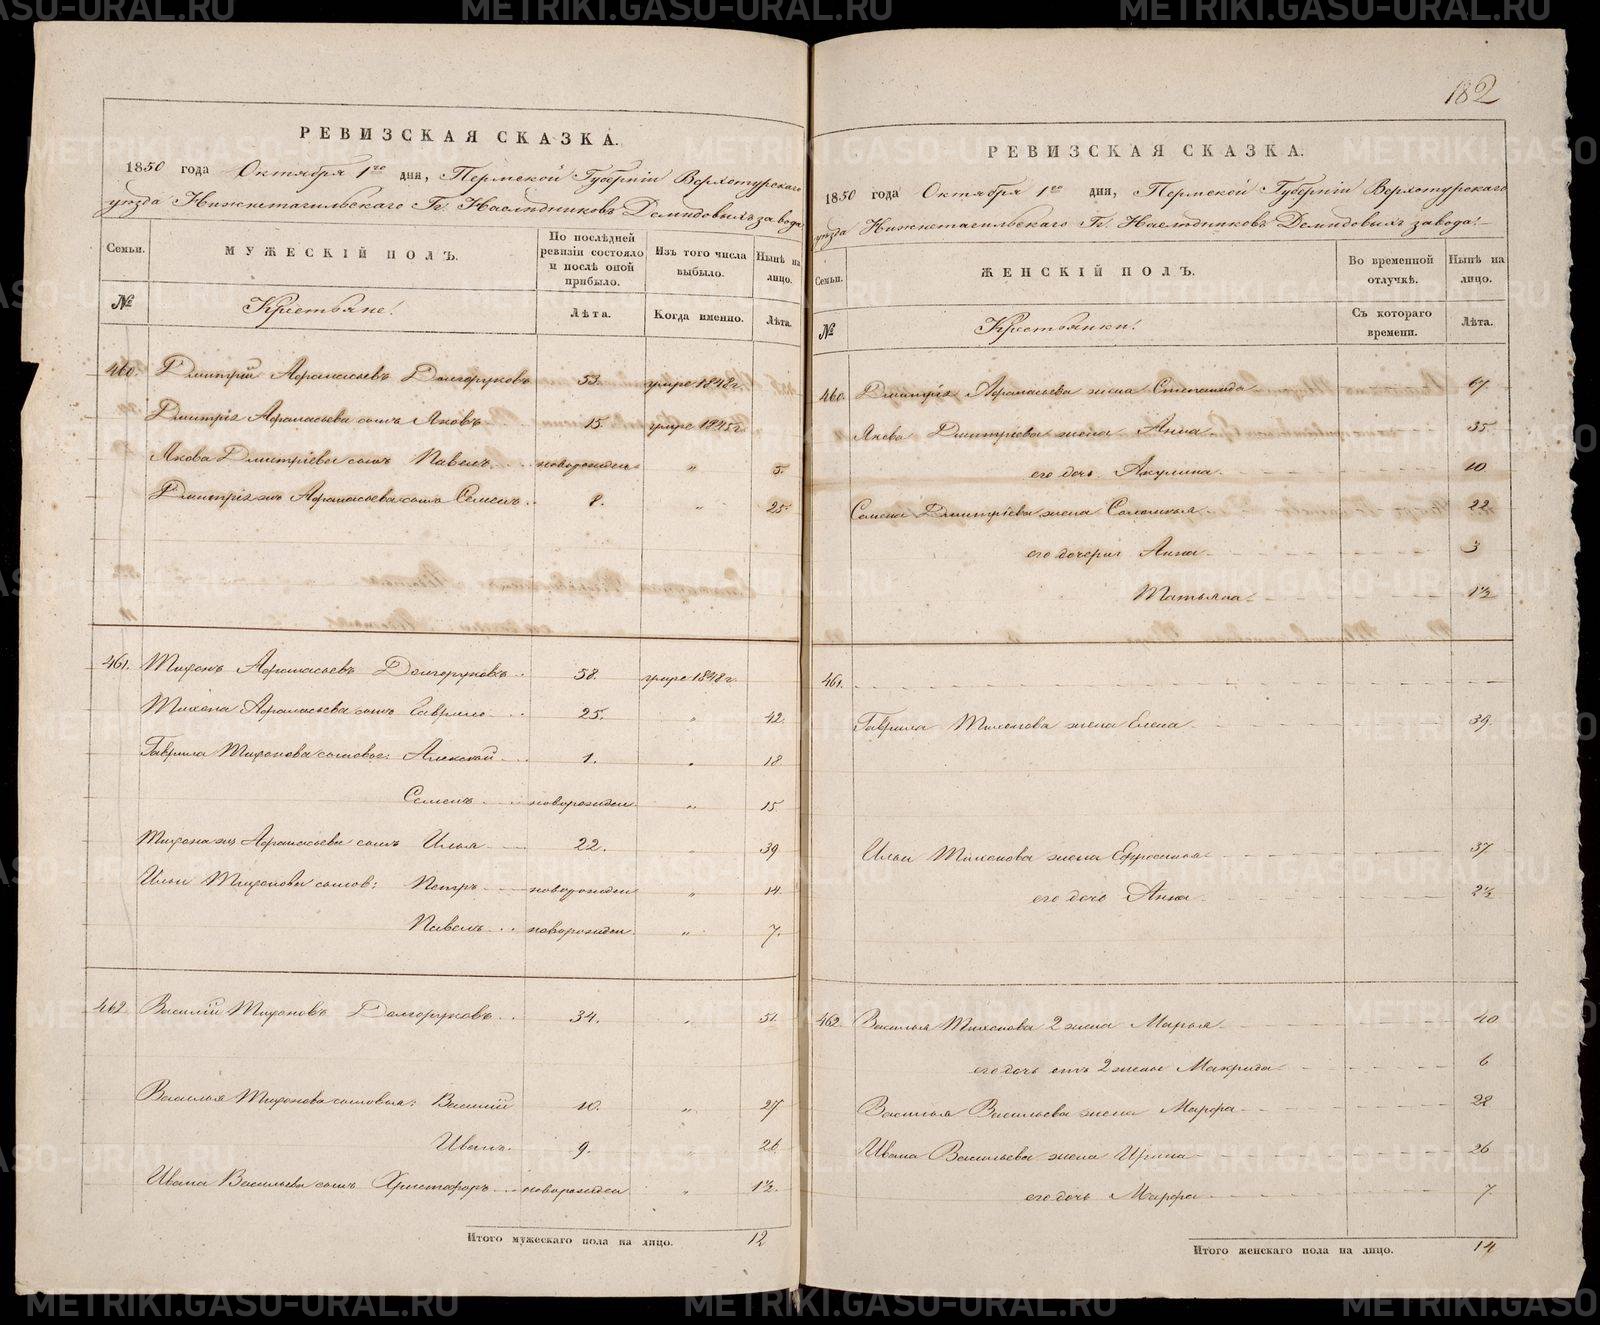 РЕВИЗСКАЯ СКАЗКА.
1850 года Октября 1го дня, Пермской Губернiи Верхотурскаго
уѣзда Нижнетагильскаго Гг. Наслѣдниковъ Демидовыхъ завода
Семьи.
МУЖЕСКІЙ ПОЛЪ.
По послѣдней ревизіи состояло и послѣ оной прибыло.
Изъ того числа выбыло.
Нынѣ на лицо.
№
Крестьяне!
Лѣта.
Когда именно.
Лѣта.
460. Дмитрiй Афанасьевъ Долгоруковъ 53. умре 1848 г.
Дмитрiя Афанасьева сынъ Яковъ 15. умре 1845 г.
Якова Дмитрiева сынъ Павелъ новорожден. " 5.
Дмитрiя жъ Афанасьева сынъ Семенъ 8. " 25.
461. Тихонъ Афанасьевъ Долгоруковъ 58. умре 1848 г.
Тихона Афанасьева сынъ Гаврило 25. " 42.
Гаврила Тихонова сыновья: Алексѣй 1. " 18.
Семенъ новорожден. " 15
Тихона жъ Афанасьева сынъ Илья 22. " 39
Ильи Тихонова сынов: Петръ новорожден " 14.
Павелъ новорожден. " 7.
462 Василiй Тихоновъ Долгоруковъ 34. " 51.
Василья Тихонова сыновья: Василiй 10. " 27
Иванъ 9. " 26
Ивана Васильева сынъ Христофоръ новорожден " 1½.
Итого мужескаго пола на лицо. 12
182
РЕВИЗСКАЯ СКАЗКА.
1850 года Октября 1го дня, Пермской Губернiи Верхотурскаго
уѣзда Нижнетагильскаго Гг. Наслѣдниковъ Демидовыхъ завода!
Семьи.
ЖЕНСКІЙ ПОЛЪ.
Во временной отлучкѣ.
Нынѣ на лицо.
№
Крестьянки!
Съ котораго времени.
Лѣта.
460. Дмитрiя Афанасьева жена Степанида 67.
Якова Дмитрiева жена Анна 35.
его дочь Акулина 10
Семена Дмитрiева жена Соломнья 22
его дочери Анна 3
Татьяна 1½
461.
Гаврила Тихонова жена Елена 39.
Ильи Тихонова жена Ефросинья 37
его дочь Анна 2½
462. Василья Тихонова 2 жена Марья 40
его дочь отъ 2 жены Макрида 6
Василья Васильева жена Марфа 28
Ивана Васильева жена Ирина 26
его дочь Марфа 7
Итого женскаго пола на лицо. 14
METRIKI.GASO-URAL.RU